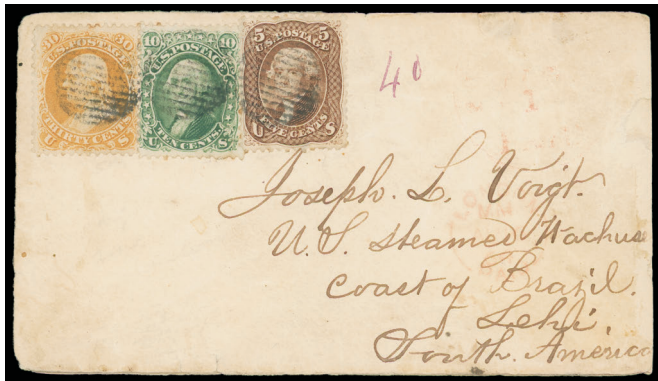 30 U.S. POSTAGE 30
THIRTY CENTS
U S
10 U.S. POSTAGE 10
TEN CENTS.
U S
5 U.S. POSTAGE 5
FIVE CENTS
U S
40
Joseph. L. Voigt.
U.S. Steamed Wachuse
Coast of Brazil.
South. America